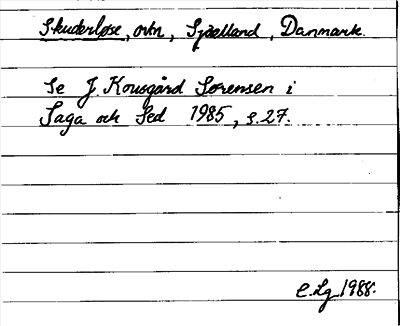 Skuderløse, ortn, Sjælland, Danmark.
Se J. Kousgård Sørensen i
Saga och Sed 1985, s. 27.
E.Lg 1988.